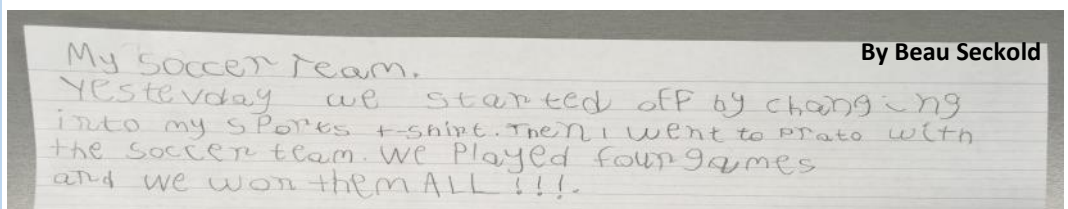 My Soccer Team.
By Beau Seckold
Yestevday we started off by changing
into my sports t-shirt. Then i went to Prato with
the soccer team. We Played four games
and we won them ALL !!!.